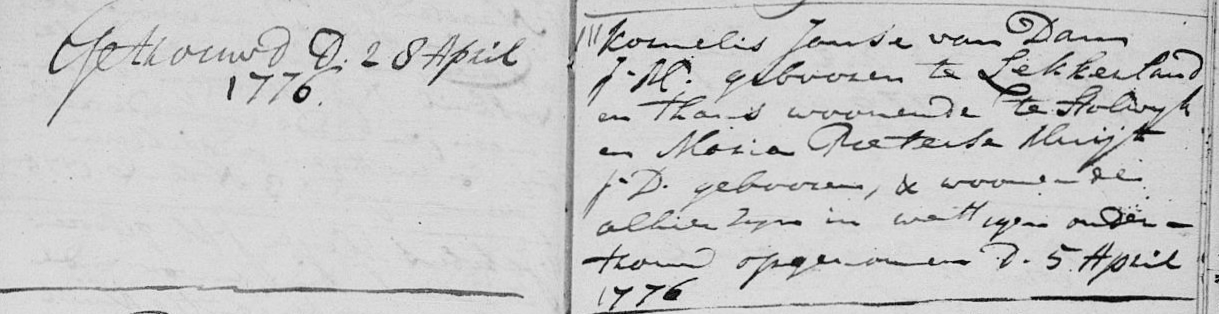 Gethouwd D. 28 April
1776.
Kornelis Janse van Dam
J. M. gebooren te Lekkerland
en thans woonende te Stolwyk
en Maria Pieterse
J. D. gebooren, & woonende
alhier zyn in wettigen onder-
trouw opgenomen D. 5 April
1776